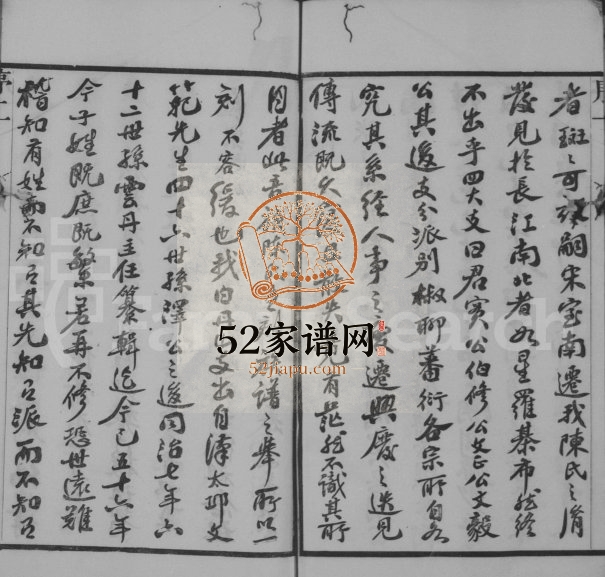 者斑斑可考嗣宋室南遷我陳氏之有
發見於長江南北者如星羅棋布然終
不出乎四大支曰君實公伯修公文正公文毅
公其後支分派別椒聊蕃衍各宗所自各
究其系經人事之變遷興廢之迭見
傳流既久 失 有茫然不識其所
自者此吾 陳 譜之舉所以一
刻不容緩也我 丹 支出自漢太邱文
範先生四十六世孫澤公之後同治七年六
十二世孫雲丹主任纂輯迄今已五十六年
今子姓既庶既繁若再不修恐世遠難
稽知有姓而不知有其先知有派而不知有
序二
52家谱网
52jiapu.com
FamilySearch